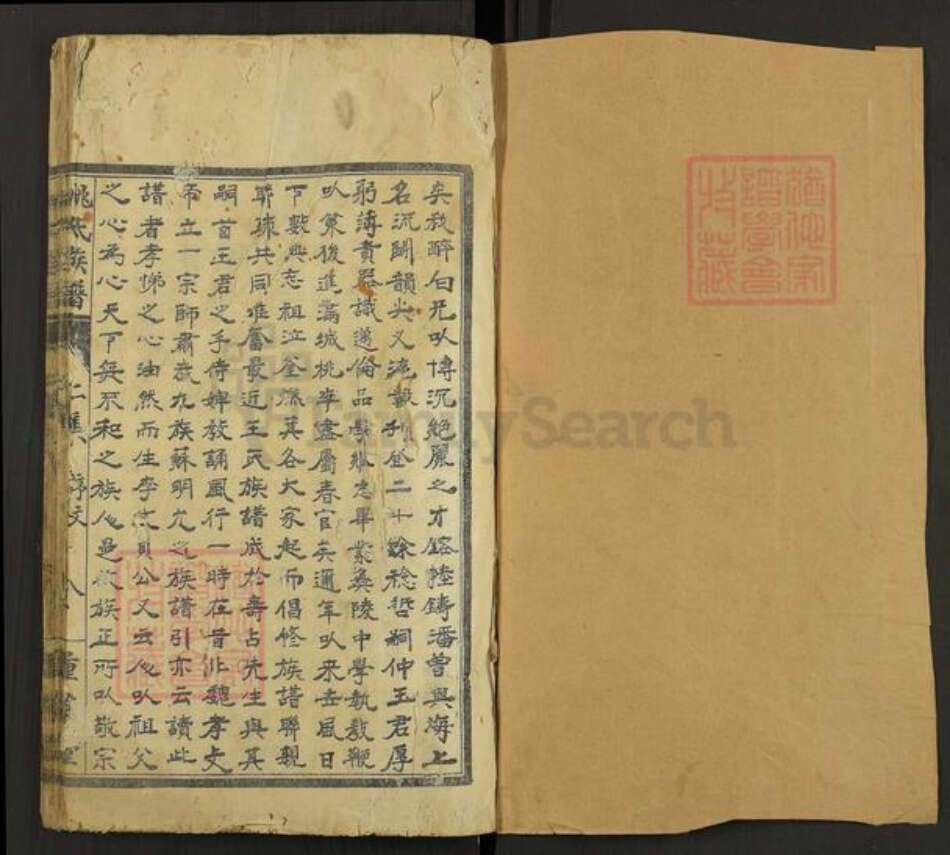 矣敎醉白尤㕥博沉絶麗之才鎔陸鑄潘曾與海上
名流鬭韻尖义流載刊登二十餘稔哲嗣仲玉君厚
躬薄責器識邁倫品學兼 畢業彝陵中學執敎鞭
㕥策後進滿城桃李盡屬春官矣邇年㕥來世風日
下數典忘祖泣釜燃萁各大家起而倡修族譜聯親
聯疎共同雄奮最近王氏族譜成於壽占先生與其
嗣首王君之手侍婢敎誦風行一時在昔北魏孝文
帝立一宗師肅 九族蘇明允之族譜引亦云讀此
譜者孝悌之心油然而生李 公又云人㕥祖父
之心為心天下無不和之族人是 族正所㕥敬宗
姚氏族譜
序文
八
猶他家譜學會收藏
FamilySearch